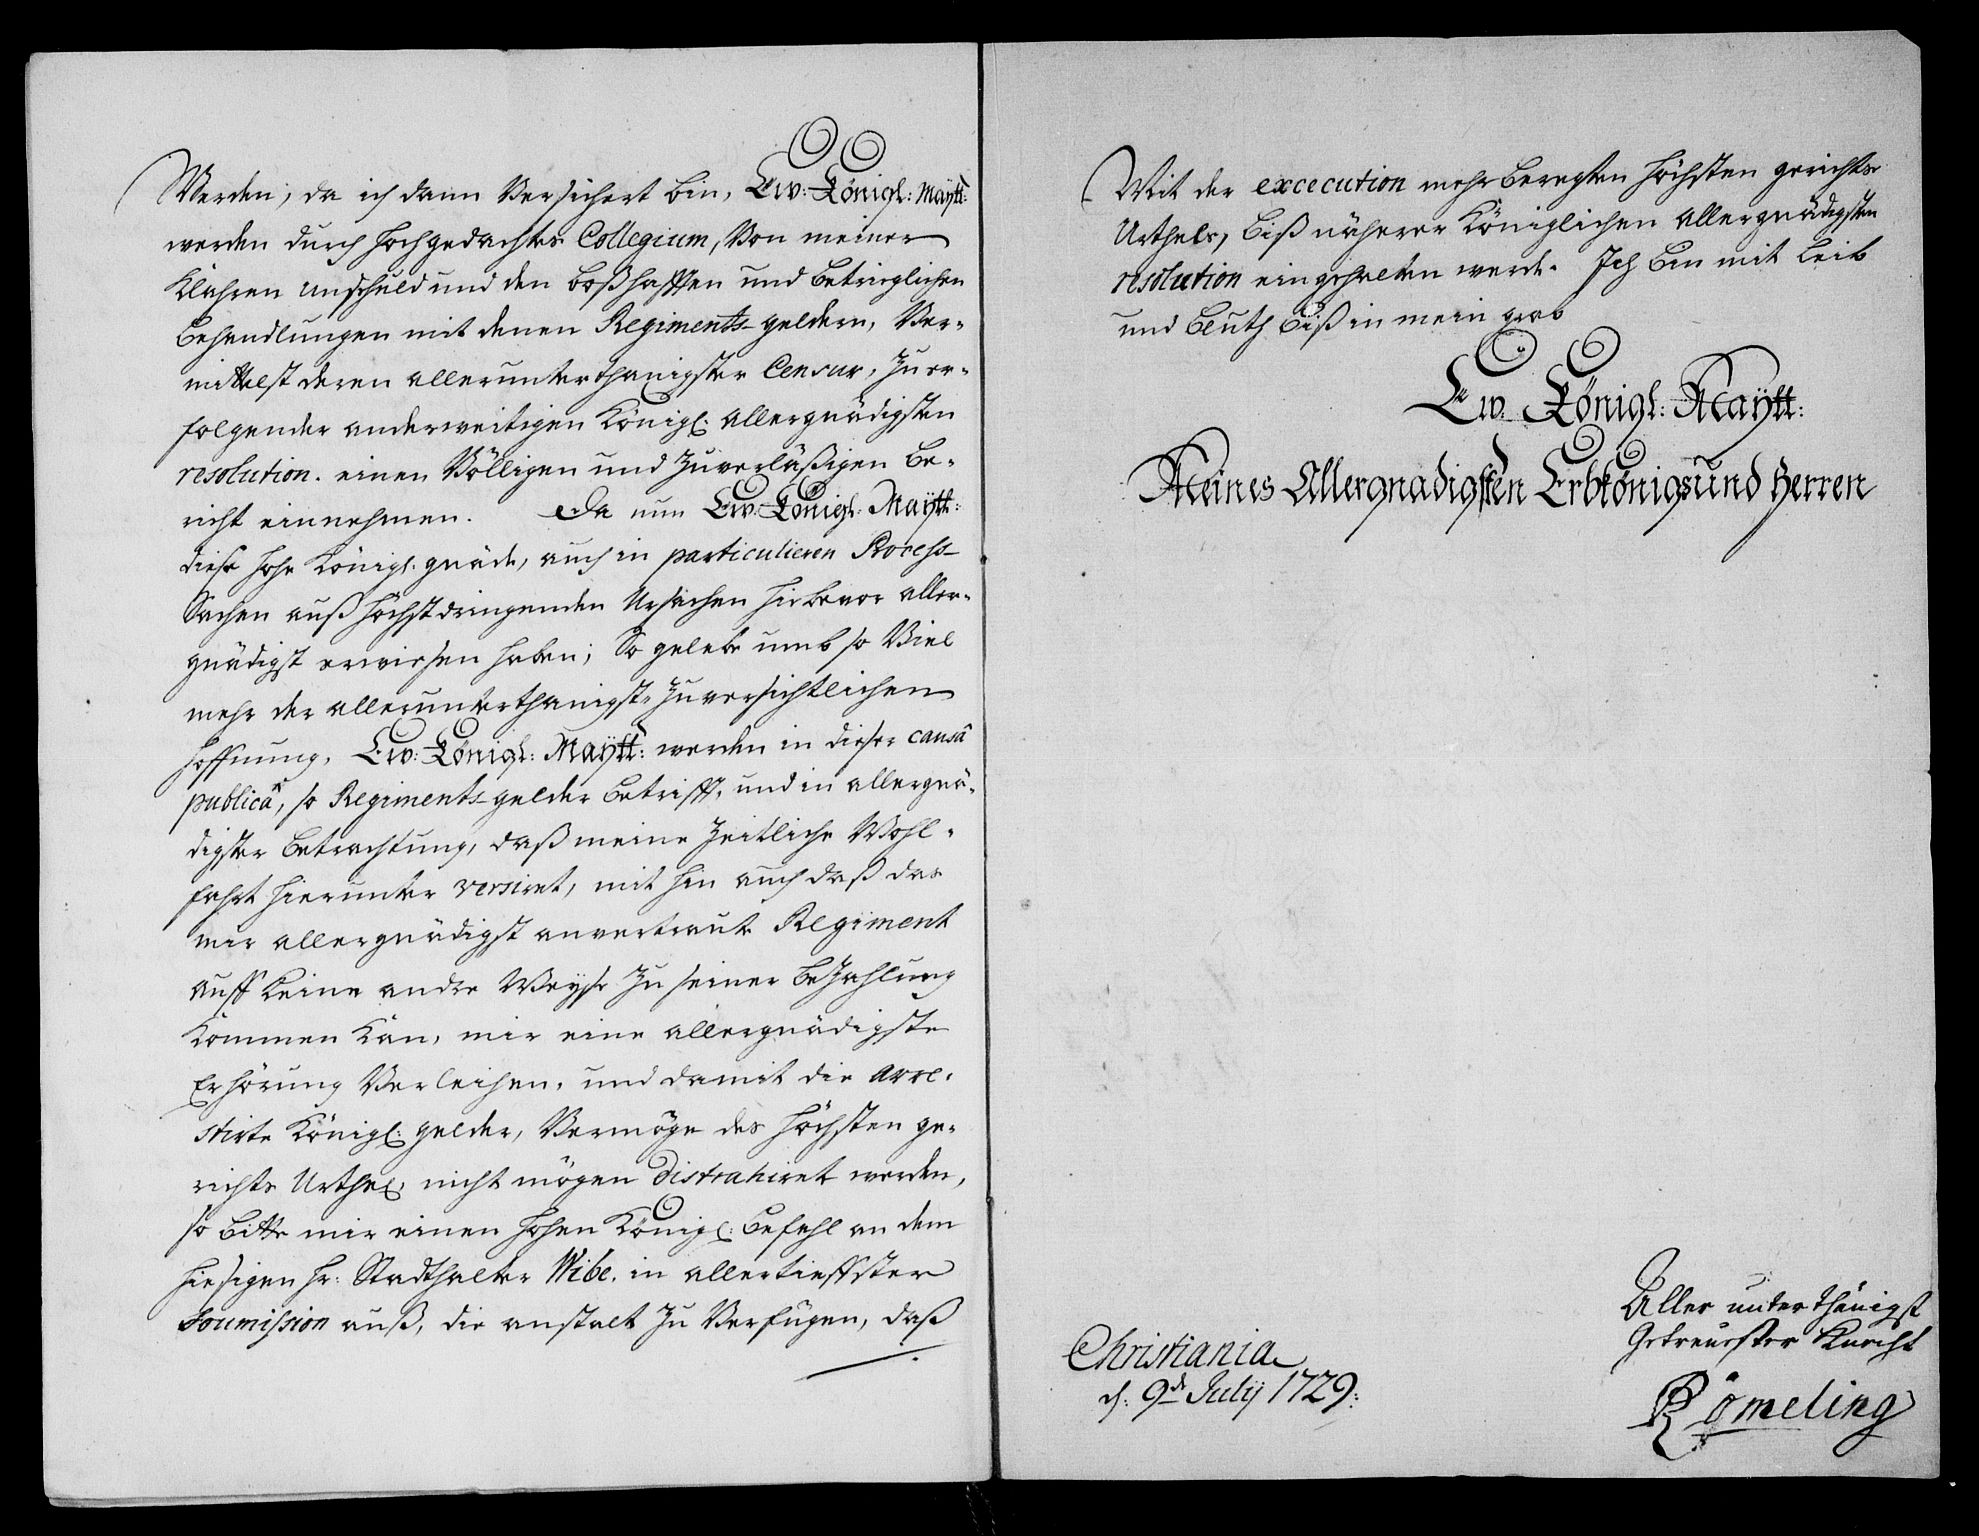 Werden, da ich dann Versichert bin, Ew: Königl: Maytt:
werden durch hochgedachtes Collegium, Von meiner
Klahren unschuld und den boßhafften und betrieglichen
behandlungen mit denen Regiments-geldern, Ver-
mittelst deren allerunterthänigster Censur, Zu er-
folgender anderweitigen Königl: allergnädigsten
resolution. einen Völligen und Zuverläßigen be-
richt einnehmen. Da nun Ew: Königl: Maytt:
diese hohe Königl. gnade, auch in particulieren Process-
Sachen auß höchstdringenden Ursachen hiebevor aller-
gnädigst erwiesen haben; So gelebe umb so Viel
mehr der allerunterthänigst-Zuversichtlichen
hoffnung, Ew: Königl: Maytt: werden in dieser causâ
publicâ, so Regiments-gelder betrifft, und in allergnä-
digster betrachtung, daß meine Zeitliche Wohl-
fahrt hierunter versiret, mit hin auch daß das
mir allergnädigst anvertraute Regiment
auff Keine andre Weyse Zu seiner bezahlung
Kommen Kan, mir eine allergnädigste
Erhörung Verleihen, und damit die Arre-
stirte Königl: gelder, Vermöge des höchsten ge-
richts Urthel, nicht mögen distrahiret werden,
so bitte mir einen hohen Königl: befehl an dem
hiesigen Hr: Stadthalter Wibe. in allertieffster
Soumission auß, die anstalt Zu Verfügen, daß
Mit der excecution mehrberegten höchsten gerichts
Urthels, biß näherer Königlichen allergnädigsten
resolution eingehalten werde. Ich bin mit Leib
und bluth biß in mein grab
Ew. Königl: Maytt:
Meines Allergnadigsten Erbkönigs und Herren
Aller unterthänigst
Getreuester Knecht
Römeling
Christiania
d: 9de Julij 1729: